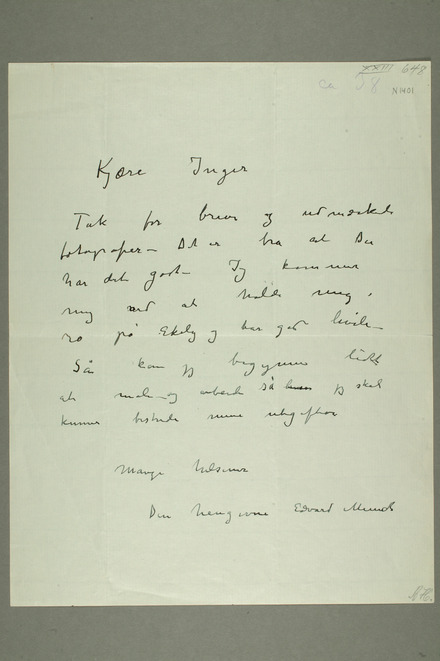 XXIII 648
ca
8
N 1401
Kjære Inger
Tak for brev og udmærkede
fotografier – Det er bra at Du
har det godt – Jeg kommer
mig ved at holde mig i
ro på Ekely og har god hvile –
Så kan jeg begynne lidt
at male – og arbeide så jeg skal
kunne bestride mine udgifter
Mange hilsener
Din hengivne Edvard Munch